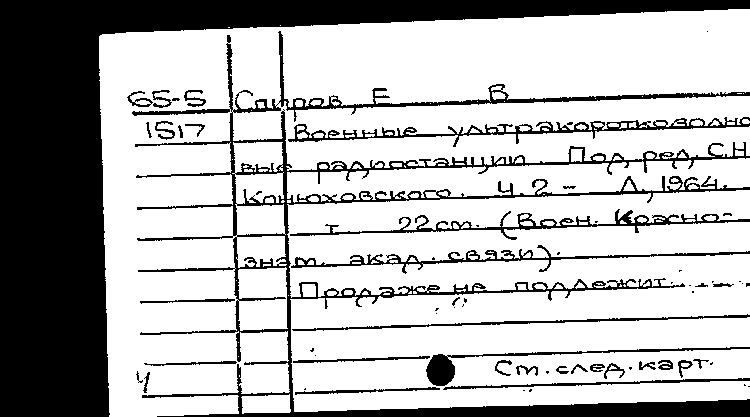 65-5 Саиров, Е В
1517 Военные ультракоротковолно
вые радиостанции. Под. ред. С.Н
Конюховского. Ч. 2 - Л., 1964.
т 22 см. (Воен. Красно-
знам. акад. связи).
Продаже не подлежит.
4 См. след. карт.